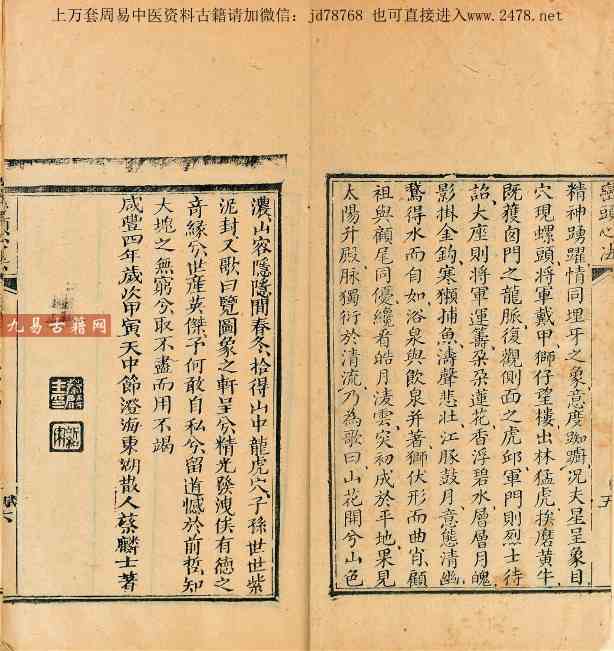 上万套周易中医资料古籍请加微信：jd78768 也可直接进入www.2478.net
巒頭心法
精神踴躍情同埋牙之象意度踟躕况夫星呈象目
穴現螺頭將軍戴甲獅仔望樓出林猛虎挨磨黄牛
既獲囪門之龍脈復觀側面之虎邱軍門則烈士待
詔大座則將軍運籌朶朶蓮花香浮碧水層層月魄
影掛金鈎寒獺捕魚濤聲悲壯江豚鼓月意態清幽
鶩得水而自如浴泉與飲泉并著獅伏形而曲肖顧
祖與顧尾同優纔看皓月凌雲突初成於平地果見
太陽升殿脉獨衍於清流乃為歌曰山花開兮山色
濃山容隱隱間春冬拾得山中龍虎穴子孫世世紫
泥封又歌曰覽圖象之軒呈兮精光發洩俟有德之
奇緣兮世產英傑予何敢自私兮留道憾於前哲知
大塊之無窮兮取不盡而用不竭
咸豐四年歲次甲寅天中節澄海東湖散人蔡麟士著
九易古籍网